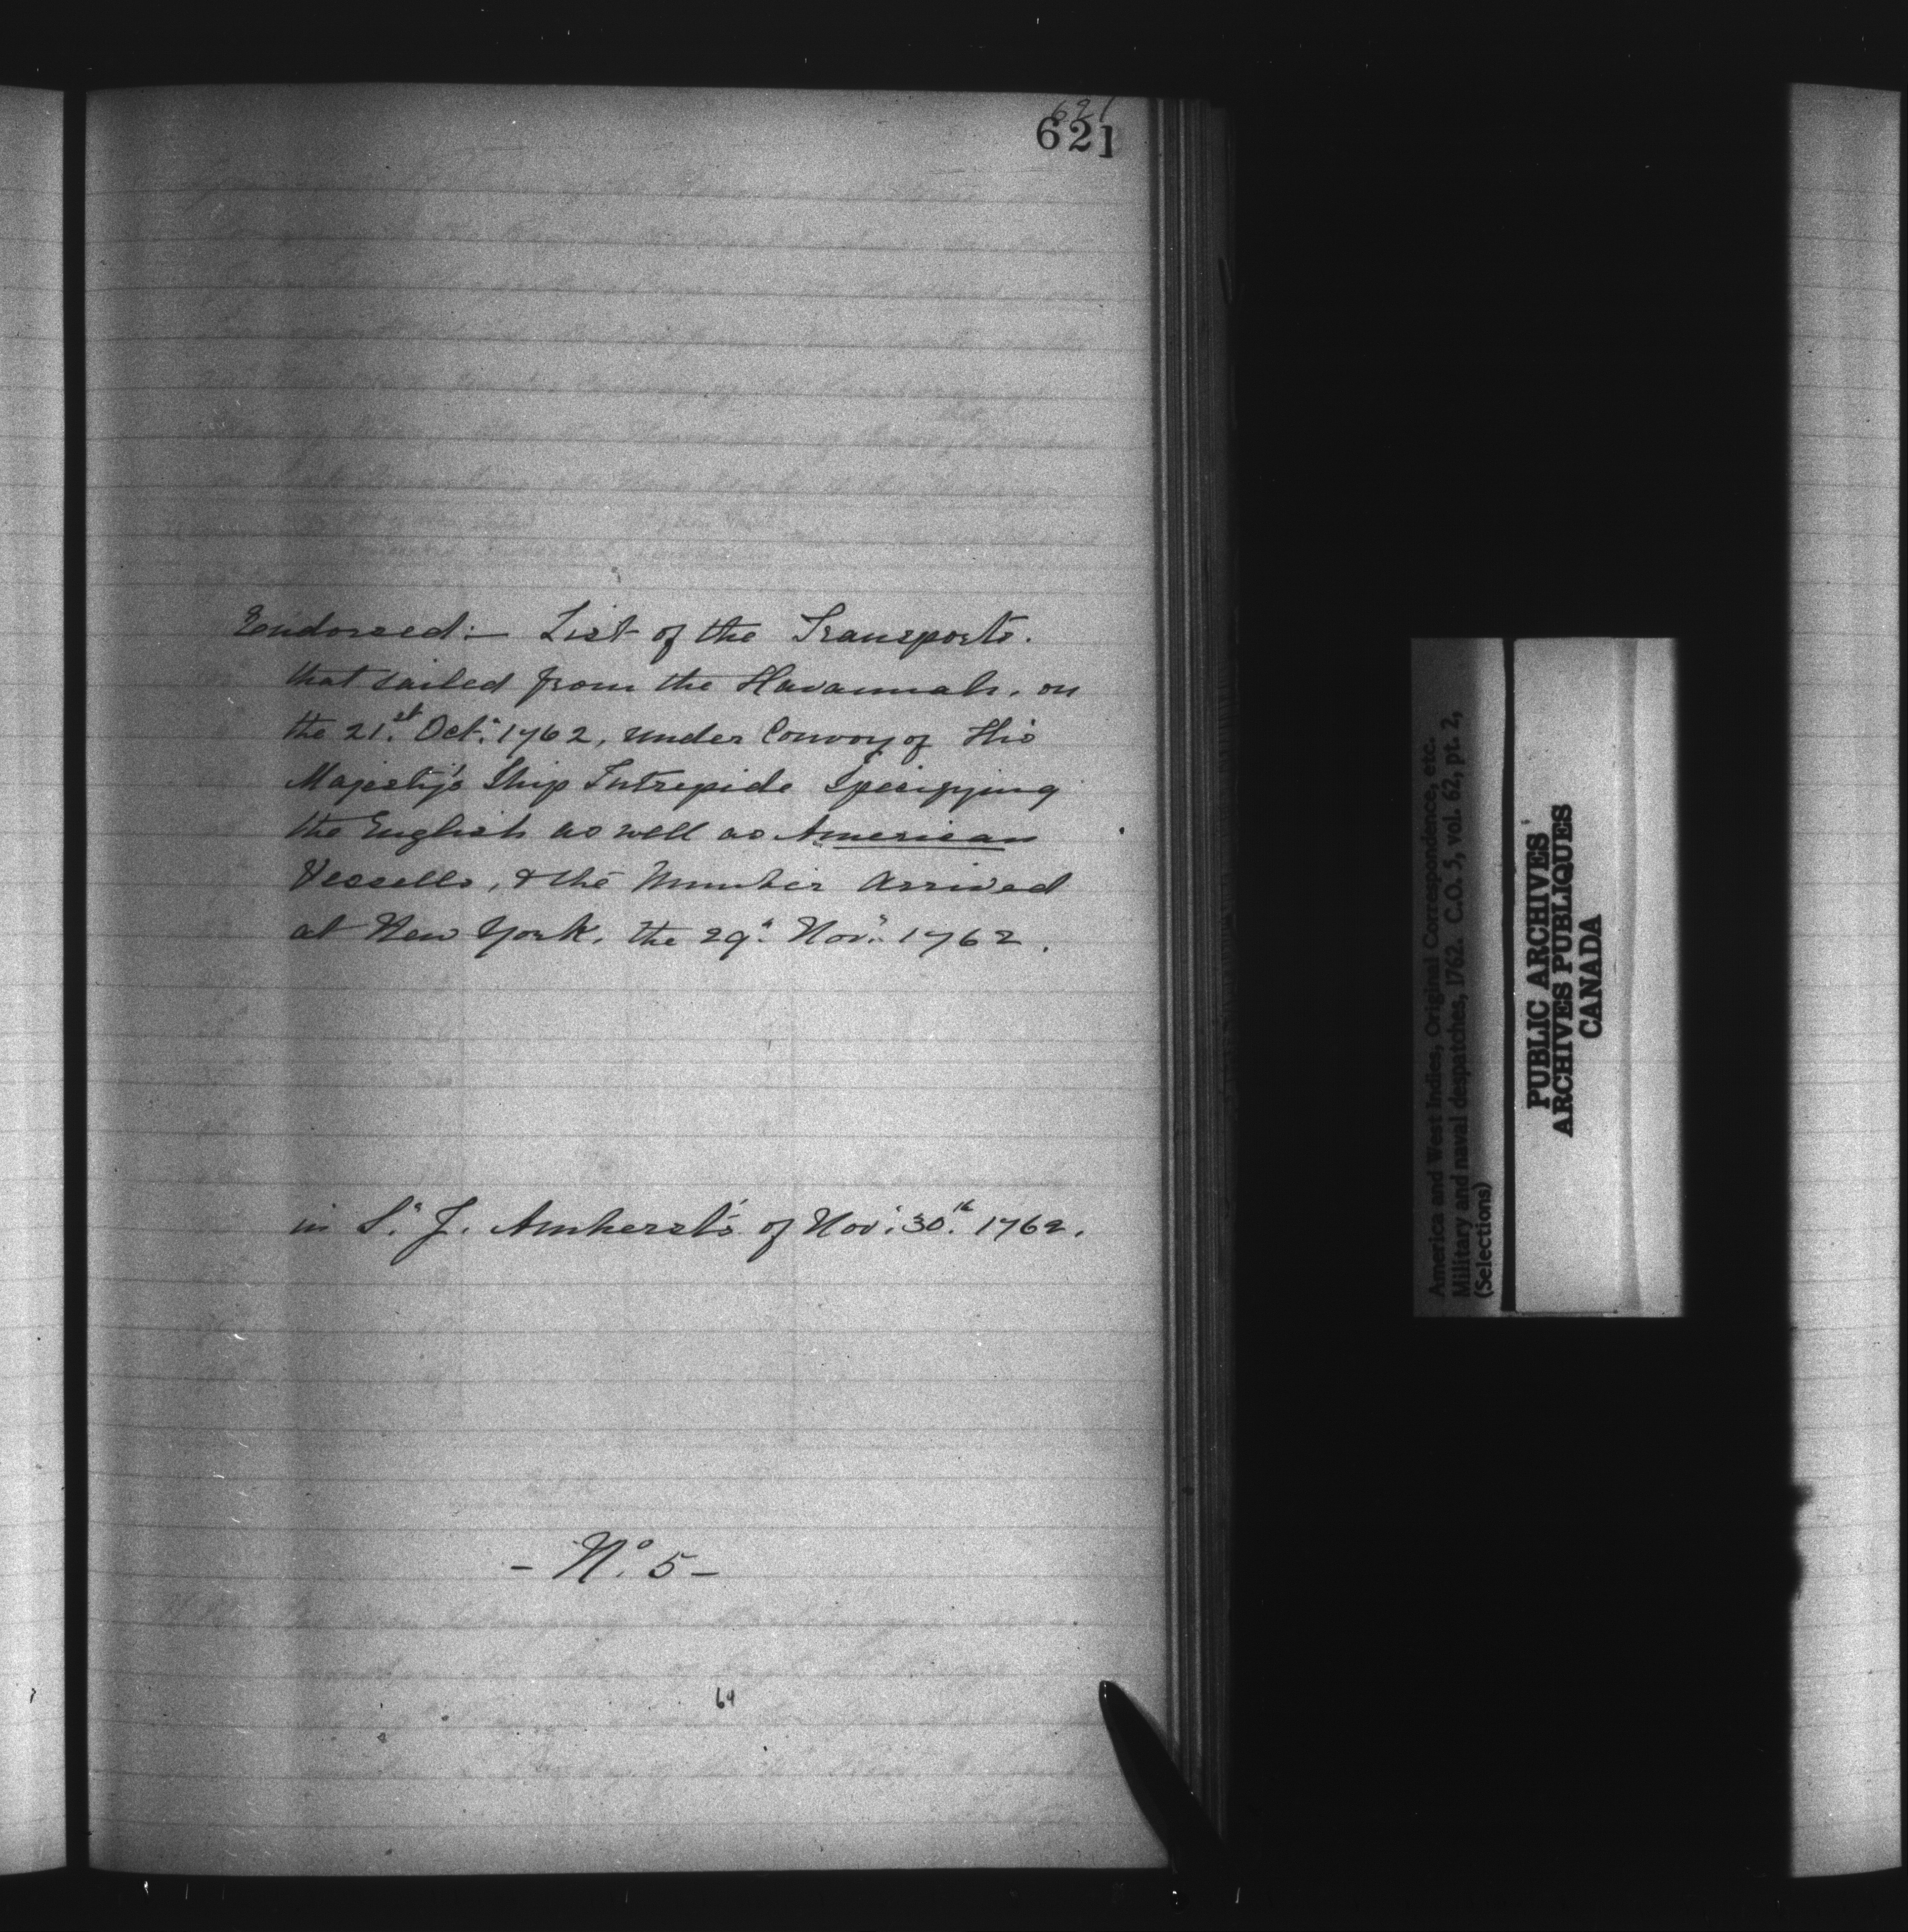 621
621
Endorsed:— List of the Transports.
that sailed from the Havannah, on
the 21.st Oct.r 1762, under Convoy of His
Majesty's Ship Intrepide Specifying
the English as well as American
Vessells, & the Number Arrived
at New York, the 29.th Nov.r 1762.
in S.r J. Amherst's of Nov.r 30.th 1762.
- N.o 5 -
64
America and West Indies, Original Correspondence, etc.
Military and naval despatches, 1762. C.O. 5, vol. 62, pt. 2,
(Selections)
PUBLIC ARCHIVES
ARCHIVES PUBLIQUES
CANADA